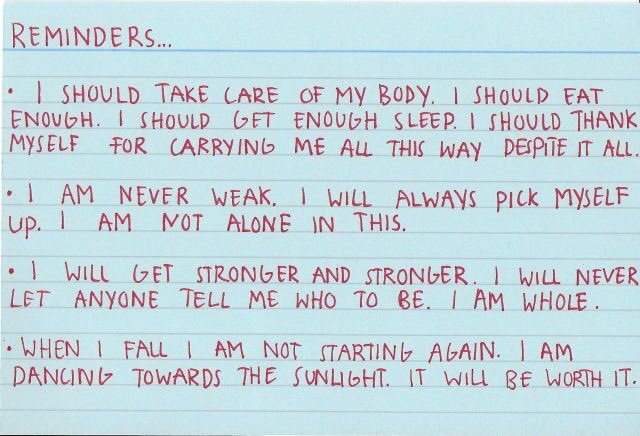 REMINDERS...
• I SHOULD TAKE CARE OF MY BODY. I SHOULD EAT
ENOUGH. I SHOULD GET ENOUGH SLEEP. I SHOULD THANK
MYSELF FOR CARRYING ME ALL THIS WAY DESPITE IT ALL.
• I AM NEVER WEAK. I WILL ALWAYS PICK MYSELF
UP. I AM NOT ALONE IN THIS.
• I WILL GET STRONGER AND STRONGER. I WILL NEVER
LET ANYONE TELL ME WHO TO BE. I AM WHOLE.
• WHEN I FALL I AM NOT STARTING AGAIN. I AM
DANCING TOWARDS THE SUNLIGHT. IT WILL BE WORTH IT.